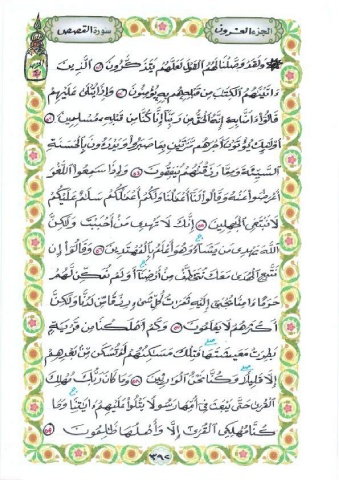 الجزء العشرون
سورة القصص
۞ وَلَقَدْ وَصَّلْنَا لَهُمُ الْقَوْلَ لَعَلَّهُمْ يَتَذَكَّرُونَ ۝٥١ الَّذِينَ
ءَاتَيْنَٰهُمُ الْكِتَٰبَ مِن قَبْلِهِ هُم بِهِ يُؤْمِنُونَ ۝٥٢ وَإِذَا يُتْلَىٰ عَلَيْهِمْ
قَالُوا ءَامَنَّا بِهِ إِنَّهُ الْحَقُّ مِن رَّبِّنَا إِنَّا كُنَّا مِن قَبْلِهِ مُسْلِمِينَ ۝٥٣
أُولَٰئِكَ يُؤْتَوْنَ أَجْرَهُم مَّرَّتَيْنِ بِمَا صَبَرُوا وَيَدْرَءُونَ بِالْحَسَنَةِ
السَّيِّئَةَ وَمِمَّا رَزَقْنَٰهُمْ يُنفِقُونَ ۝٥٤ وَإِذَا سَمِعُوا اللَّغْوَ
أَعْرَضُوا عَنْهُ وَقَالُوا لَنَا أَعْمَٰلُنَا وَلَكُمْ أَعْمَٰلُكُمْ سَلَٰمٌ عَلَيْكُمْ
لَا نَبْتَغِي الْجَٰهِلِينَ ۝٥٥ إِنَّكَ لَا تَهْدِي مَنْ أَحْبَبْتَ وَلَٰكِنَّ
اللَّهَ يَهْدِي مَن يَشَاءُ وَهُوَ أَعْلَمُ بِالْمُهْتَدِينَ ۝٥٦ وَقَالُوا إِن
نَّتَّبِعِ الْهُدَىٰ مَعَكَ نُتَخَطَّفْ مِنْ أَرْضِنَا أَوَلَمْ نُمَكِّن لَّهُمْ
حَرَمًا ءَامِنًا يُجْبَىٰ إِلَيْهِ ثَمَرَٰتُ كُلِّ شَيْءٍ رِّزْقًا مِّن لَّدُنَّا وَلَٰكِنَّ
أَكْثَرَهُمْ لَا يَعْلَمُونَ ۝٥٧ وَكَمْ أَهْلَكْنَا مِن قَرْيَةٍ
بَطِرَتْ مَعِيشَتَهَا فَتِلْكَ مَسَٰكِنُهُمْ لَمْ تُسْكَن مِّن بَعْدِهِمْ
إِلَّا قَلِيلًا وَكُنَّا نَحْنُ الْوَٰرِثِينَ ۝٥٨ وَمَا كَانَ رَبُّكَ مُهْلِكَ
الْقُرَىٰ حَتَّىٰ يَبْعَثَ فِي أُمِّهَا رَسُولًا يَتْلُوا عَلَيْهِمْ ءَايَٰتِنَا وَمَا
كُنَّا مُهْلِكِي الْقُرَىٰ إِلَّا وَأَهْلُهَا ظَٰلِمُونَ ۝٥٩
٣٩٢